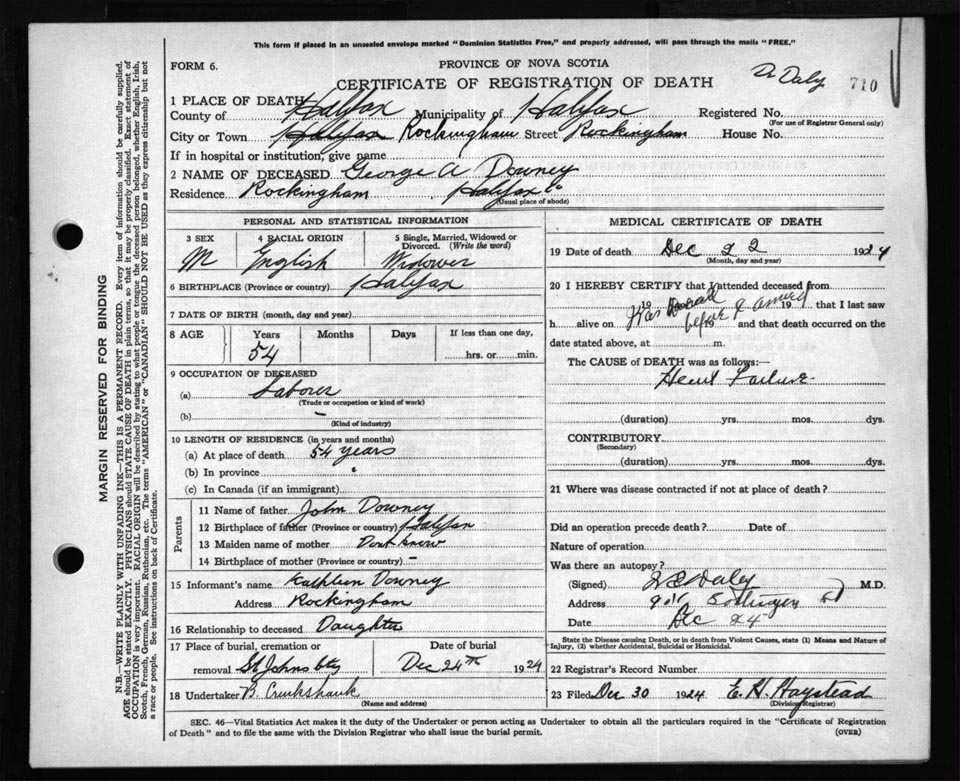 This form if placed in an unsealed envelope marked "Dominion Statistics Free," and properly addressed, will pass through the mails "FREE."
FORM 6.
PROVINCE OF NOVA SCOTIA
CERTIFICATE OF REGISTRATION OF DEATH
Dr Daly 710
1 PLACE OF DEATH
County of Halifax Municipality of Halifax Registered No.
(For use of Registrar General only)
City or Town Halifax Rockingham Street Rockingham House No.
If in hospital or institution, give name
2 NAME OF DECEASED George A Downey
Residence Rockingham Halifax Co
(Usual place of abode)
PERSONAL AND STATISTICAL INFORMATION
3 SEX 4 RACIAL ORIGIN 5 Single, Married, Widowed or Divorced. (Write the word)
M English Widower
6 BIRTHPLACE (Province or country) Halifax
7 DATE OF BIRTH (month, day and year)
8 AGE Years Months Days If less than one day,
54 hrs. or min.
9 OCCUPATION OF DECEASED
(a) Laborer
(Trade or occupation or kind of work)
(b) –
(Kind of industry)
10 LENGTH OF RESIDENCE (in years and months)
(a) At place of death 54 years
(b) In province "
(c) In Canada (if an immigrant)
Parents
11 Name of father John Downey
12 Birthplace of father (Province or country) Halifax
13 Maiden name of mother Dont know
14 Birthplace of mother (Province or country) –
15 Informant's name Kathleen Downey
Address Rockingham
16 Relationship to deceased Daughter
17 Place of burial, cremation or removal St Johns Cty
Date of burial
Dec 24th 1924
18 Undertaker B. Cruikshank
(Name and address)
MEDICAL CERTIFICATE OF DEATH
19 Date of death Dec 22 1924
(Month, day and year)
20 I HEREBY CERTIFY that I attended deceased from
19 19 that I last saw
Was Dead before I arrived
h alive on 19 and that death occurred on the
date stated above, at m.
The CAUSE of DEATH was as follows:—
Heart Failure
(duration) yrs. mos. dys.
CONTRIBUTORY
(Secondary)
(duration) yrs. mos. dys.
21 Where was disease contracted if not at place of death?
Did an operation precede death? Date of
Nature of operation
Was there an autopsy?
(Signed) Daley M.D.
Address
Date Dec 24
State the Disease causing Death, or in death from Violent Causes, state (1) Means and Nature of
Injury, (2) whether Accidental, Suicidal or Homicidal.
22 Registrar's Record Number
23 Filed Dec 30 1924 E. H. Haystead
(Division Registrar)
SEC. 46—Vital Statistics Act makes it the duty of the Undertaker or person acting as Undertaker to obtain all the particulars required in the "Certificate of Registration
of Death" and to file the same with the Division Registrar who shall issue the burial permit.
(OVER)
MARGIN RESERVED FOR BINDING
N.B.—WRITE PLAINLY WITH UNFADING INK—THIS IS A PERMANENT RECORD. Every item of information should be carefully supplied.
AGE should be stated EXACTLY. PHYSICIANS should STATE CAUSE OF DEATH in plain terms, so that it may be properly classified. Exact statement of
OCCUPATION is very important. RACIAL ORIGIN will be described by stating to what people or tongue the deceased person belonged, whether English, Irish,
Scotch, French, German, Russian, Ruthenian, etc. The terms "AMERICAN" or "CANADIAN" SHOULD NOT BE USED as they express citizenship but not
a race or people. See instructions on back of Certificate.